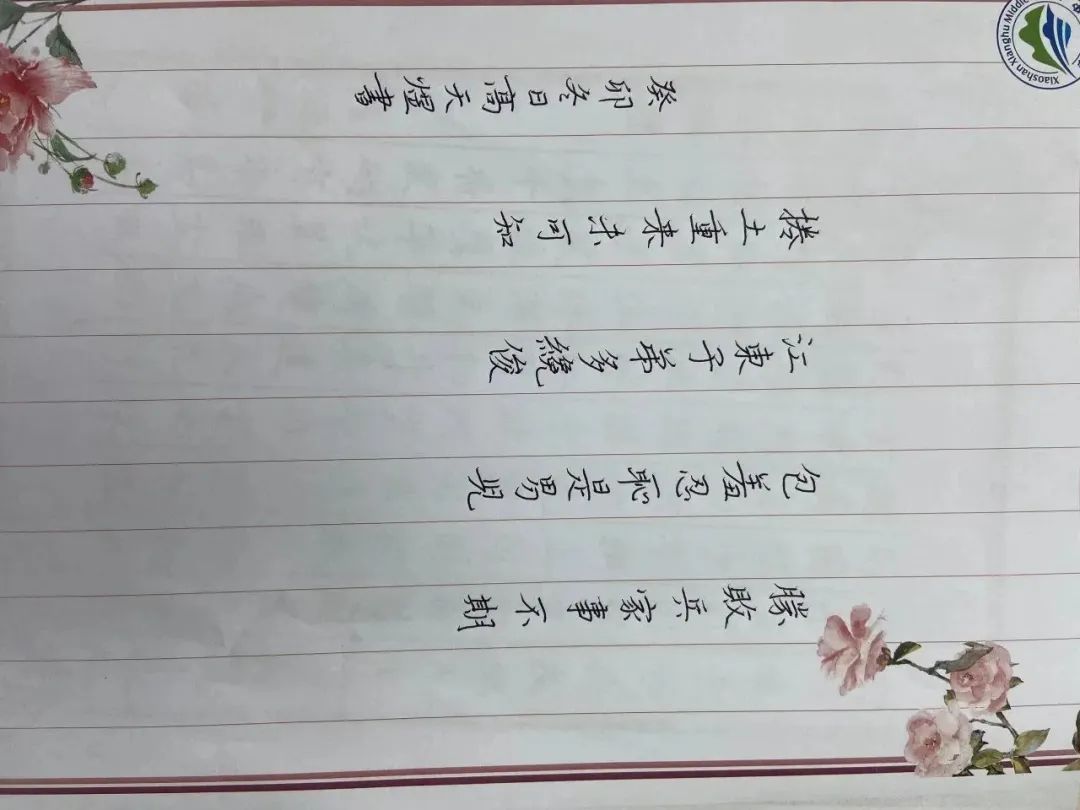 勝敗兵家事不期
包羞忍恥是男兒
江東子弟多纔俊
捲土重来未可知
癸卯冬日高天煜書
Xiaoshan Xianghu Middle